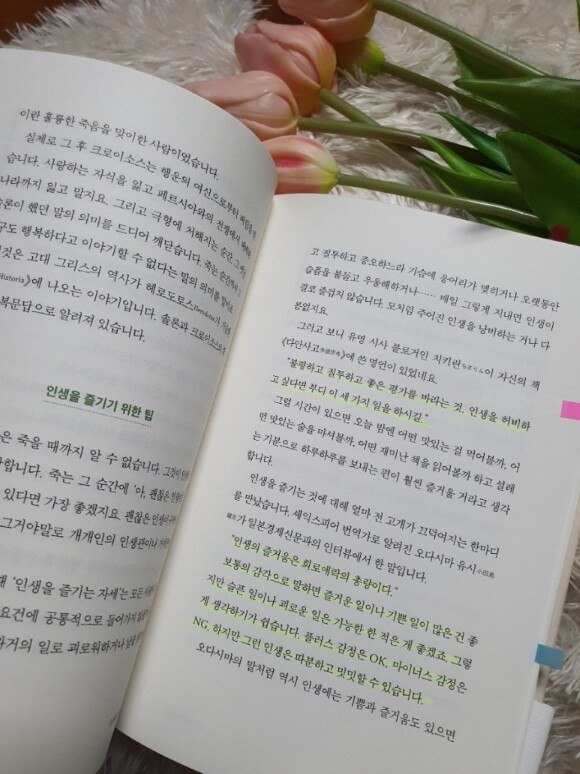 이란 훌륭한 죽음을 맞이한 사람이었습니다.
실제로 그 후 크로이소스는 행운의 여신으로부터 버림을
습니다. 사랑하는 자식을 잃고 페르시아와의 전쟁에서
나라까지 잃고 말지요. 그리고 극형에 처해지는 순간
솔론이 했던 말의 의미를 드디어 깨닫습니다. 죽는 순간까지
구도 행복하다고 이야기할 수 없다는 말의 의미를
것은 고대 그리스의 역사가 헤로도토스
》에 나오는 이야기입니다. 솔론과 크로이소스의
복문답으로 알려져 있습니다.
인생을 즐기기 위한 팁
은 죽을 때까지 알 수 없습니다. 그것이
합니다. 죽는 그 순간에 '아, 괜찮은
있다면 가장 좋겠지요. 괜찮은
그거야말로 개개인의 인생관이나
'인생을 즐기는 자세'는 모든
요건에 공통적으로 들어가지
과거의 일로 괴로워하거나
고 질투하고 증오하느라 가슴에 응어리가 맺히거나 오랫동안
슬픔을 붙들고 우울해하거나…… 매일 그렇게 지내면 인생이
결코 즐겁지 않습니다. 모처럼 주어진 인생을 낭비하는 거나 다
름없지요.
그러고 보니 유명 시사 블로거인 치키린ちきりん이 자신의 책
《다만사고多眠思考》에 쓴 명언이 있었네요.
"불평하고 질투하고 좋은 평가를 바라는 것, 인생을 허비하
고 싶다면 부디 이 세 가지 일을 하시길."
그럴 시간이 있으면 오늘 밤엔 어떤 맛있는 걸 먹어볼까, 어
떤 맛있는 술을 마셔볼까, 어떤 재미난 책을 읽어볼까 하고 설레
는 기분으로 하루하루를 보내는 편이 훨씬 즐거울 거라고 생각
합니다.
인생을 즐기는 것에 대해 얼마 전 고개가 끄덕여지는 한마디
를 만났습니다. 셰익스피어 번역가로 알려진 오다시마 유시小田島
雄志가 일본경제신문과의 인터뷰에서 한 말입니다.
"인생의 즐거움은 희로애락의 총량이다."
보통의 감각으로 말하면 즐거운 일이나 기쁜 일이 많은 건 좋
지만 슬픈 일이나 괴로운 일은 가능한 한 적은 게 좋겠죠. 그렇
게 생각하기가 쉽습니다. 플러스 감정은 OK, 마이너스 감정은
NG. 하지만 그런 인생은 따분하고 밋밋할 수 있습니다.
오다시마의 말처럼 역시 인생에는 기쁨과 즐거움도 있으면